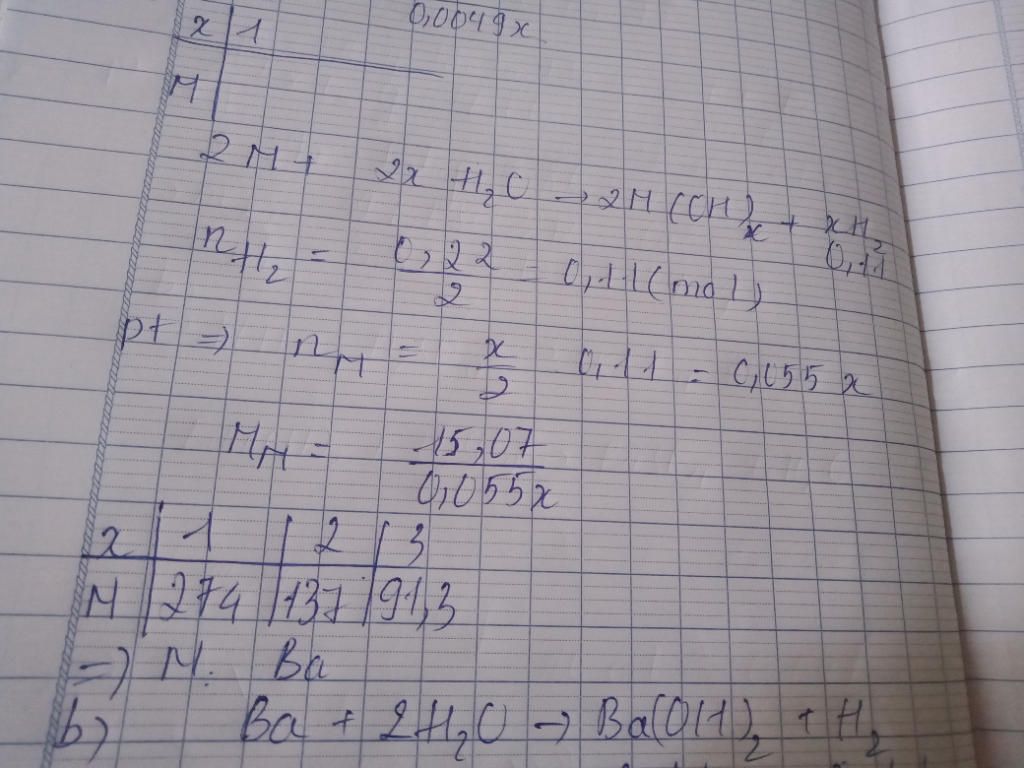 x | 1 0,0049x
M |
2M + 2x H₂O → 2M(OH)ₓ + xH₂
0,11
n_H₂ = 0,22/2 = 0,11 (mol)
pt ⇒ n_M = x/2 0,11 = 0,055x
M_M = 15,07/0,055x
x | 1 | 2 | 3
M | 274 | 137 | 91,3
=) M: Ba
b) Ba + 2H₂O → Ba(OH)₂ + H₂